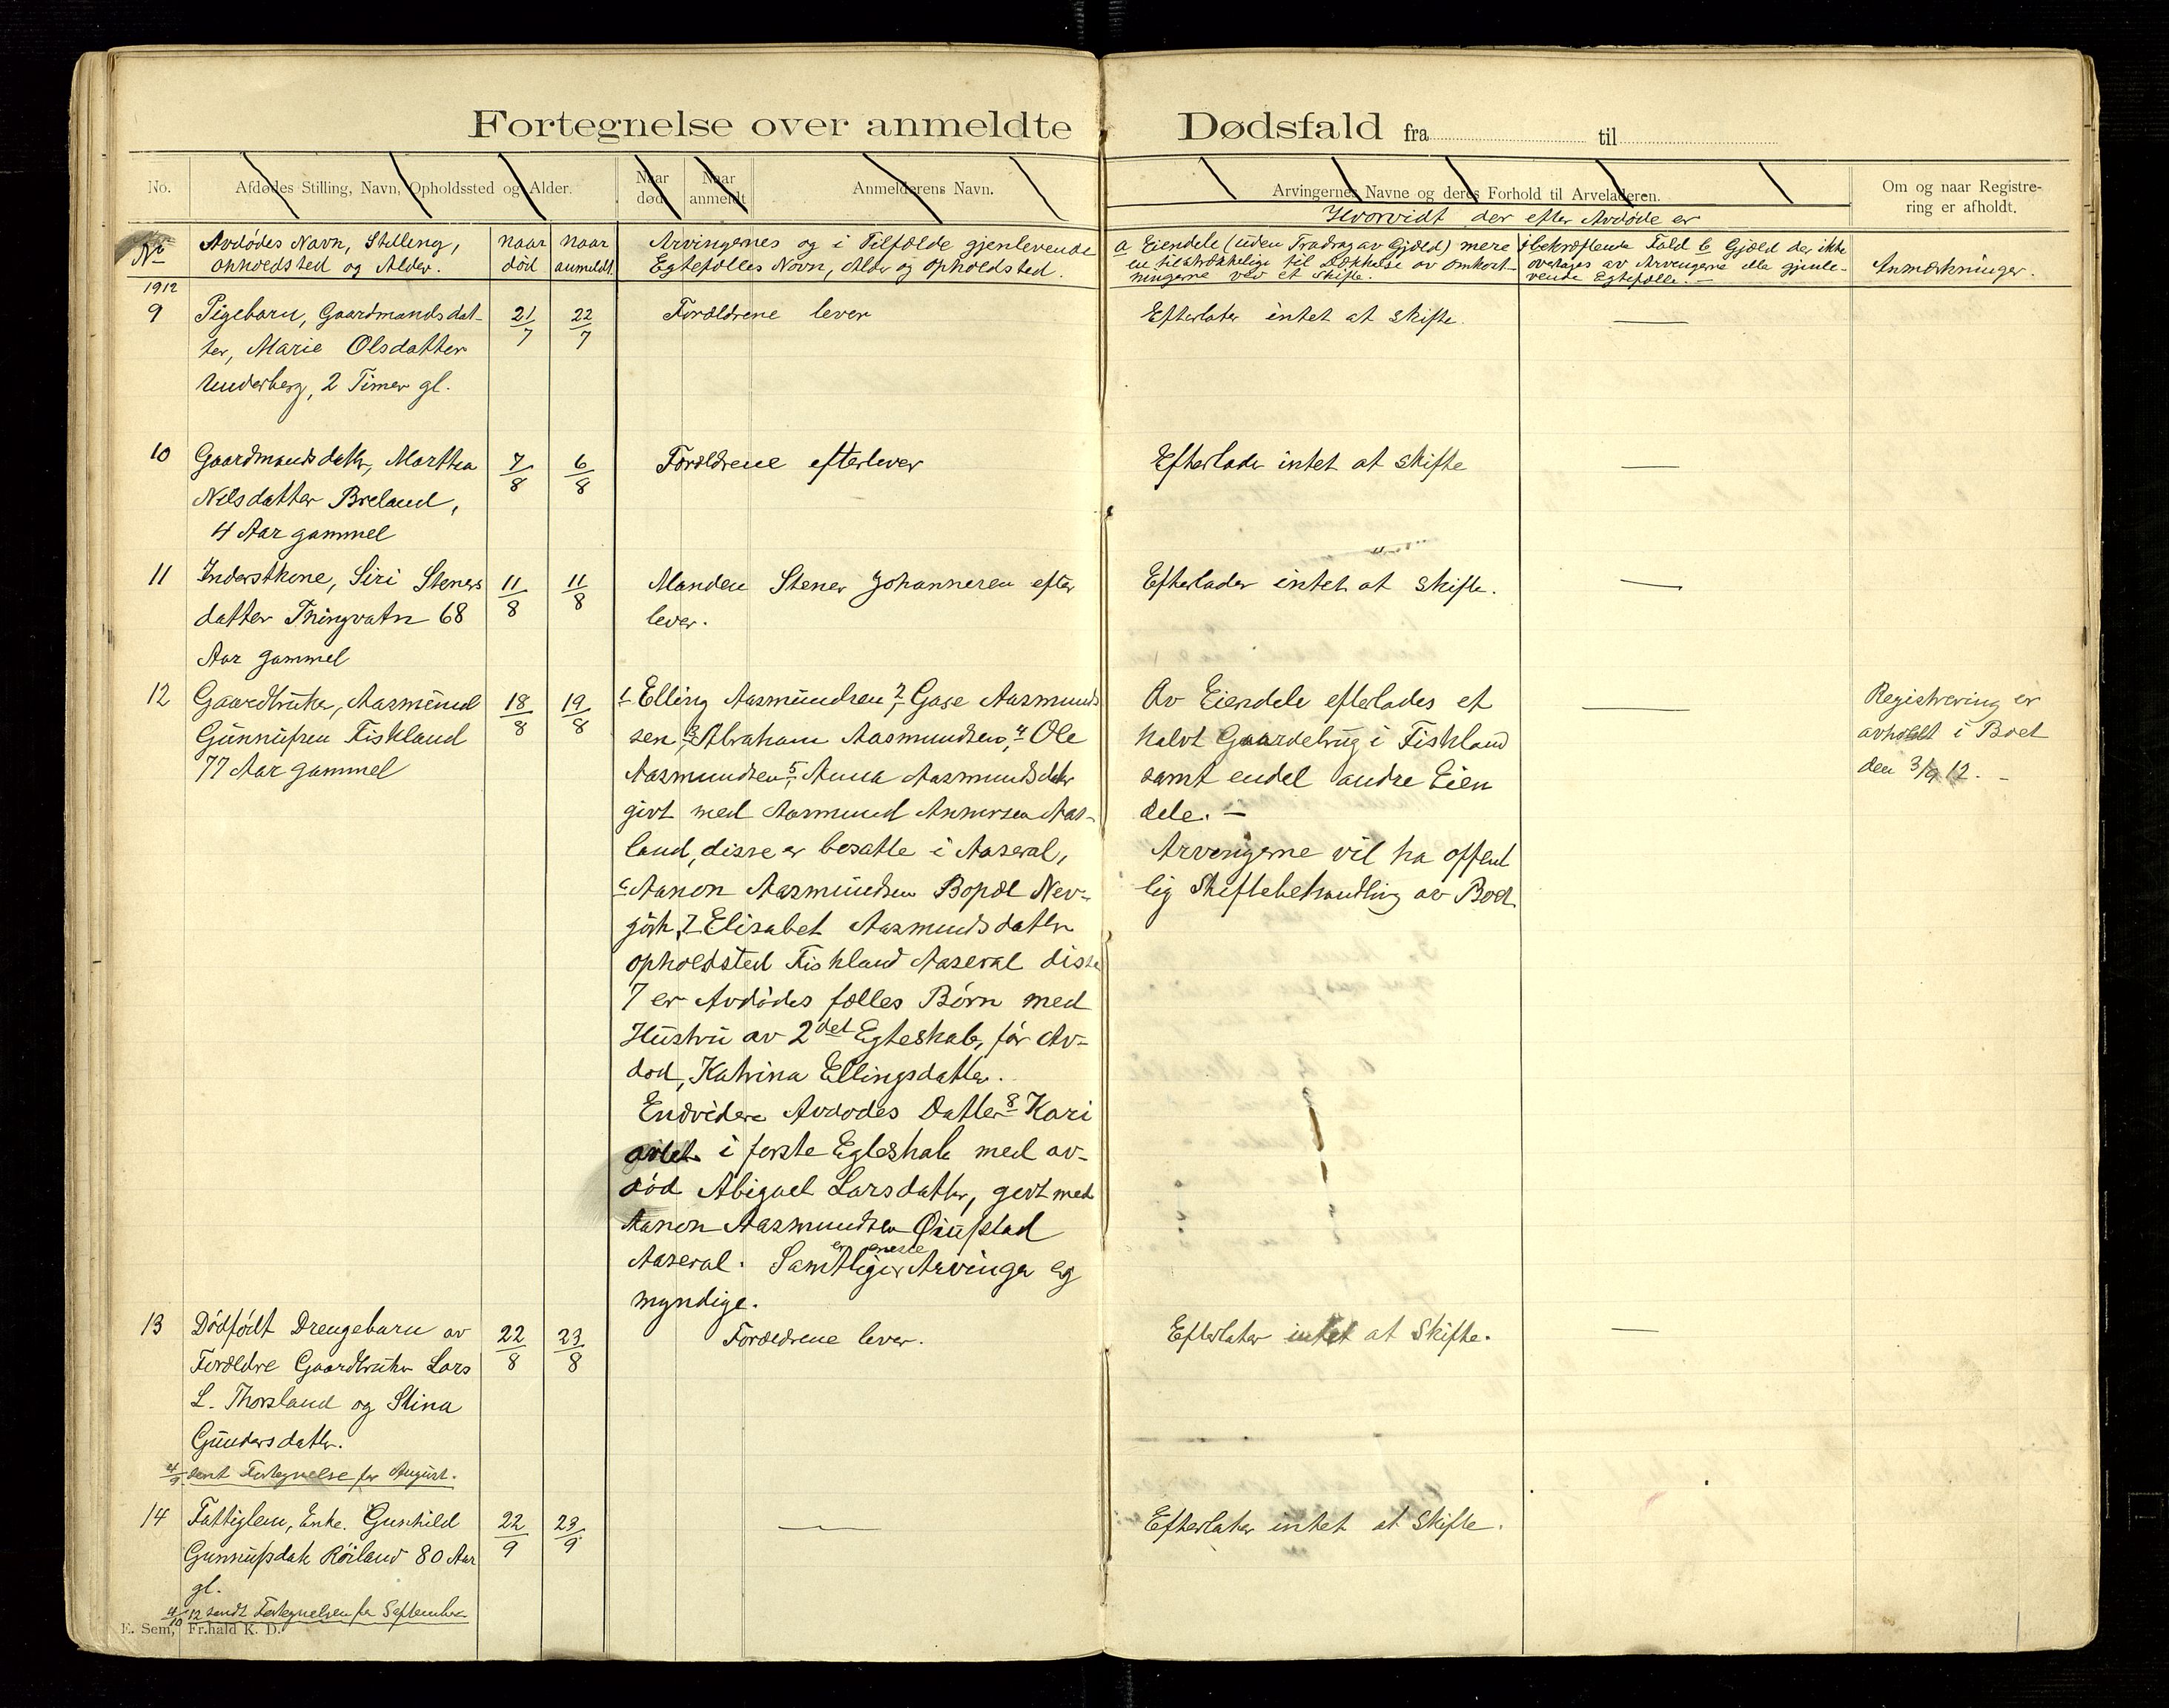 Fortegnelse over anmeldte Dødsfald fra til
No.
Afdødes Stilling, Navn, Opholdssted og Alder.
Naar død
Naar anmeldt
Anmelderens Navn.
Arvingernes Navne og deres Forhold til Arveladeren.
Om og naar Registre-
ring er afholdt.
Hvorvidt der efter Avdøde er
No
Avdødes Navn, Stilling,
opholdsted og Alder.
naar
død
naar
anmeldt.
Arvingernes og i Tilfælde gjenlevende
Egtefælles Navn, Alder og opholdsted.
a Eiendele (uden Fradrag av Gjæld) mere
en tilstrækkelige til Dækkelse av omkost-
ningerne ved et Skifte.
i bekræftende Fald b Gjæld der ikke
overtages av Arvingerne elle gjenle-
vende Egtefælle. —
Anmærkninger.
1912
9
Pigebarn, Gaardmandsdat-
ter, Marie Olsdatter
Underberg, 2 Timer gl.
21/7
22/7
Forældrene lever
Efterlater intet at skifte.
—
10
Gaardmandsdatr, Marthea
Nilsdatter Breland,
4 Aar gammel
7/8
6/8
Forældrene efterlever
Efterlader intet at skifte
—
11
Inderstkone, Siri Steners
datter Thingvatn 68
Aar gammel
11/8
11/8
Manden Stener Johannesen efter
lever.
Efterlader intet at skifte.
—
12
Gaardbruker, Aasmund
Gunnufsen Fiskland
77 Aar gammel
18/8
19/8
1 Elling Aasmundsen, 2 Gase Aasmund
sen, 3 Abraham Aasmundsen, 4 Ole
Aasmundsen, 5 Anna Aasmundsdatr
givt med Aasmund Aanersen Aas-
land, disse er bosatte i Aaseral,
6 Aanon Aasmundsen Bopæl Nev-
jörk, 7 Elisabet Aasmundsdatter
opholdsted Fiskland Aaseral disse
7 er Avdødes fælles Børn med
Hustru av 2det Egteskab, før Av-
død, Katrina Ellingsdatter.
Endvidere Avdødes Datter 8 Kari
avlet i første Egteskab med av-
død Abigael Larsdatter, givt med
Aanon Aasmundsen Øiufstad
Aaseral. Samtlige er eneste Arvinger og
myndige.
Av Eiendele efterlades et
halvt Gaardebrug i Fiskland
samt endel andre Eien
dele. —
Arvingerne vil ha offent
lig Skiftebehandling av Boet
—
Registrering er
avholdt i Boet
den 3/9 12. —
13
Dødfødt Drengebarn av
Forældre Gaardbruker Lars
L. Thorsland og Stina
Gundersdatter.
22/8
23/8
Forældrene lever.
Efterlater intet at Skifte.
—
4/9 sendt Fortegnelse for August.
14
Fattiglem, Enke. Gunhild
Gunnufsdatr Röiland 80 Aar
gl.
22/9
23/9
—
Efterlater intet at Skifte.
4/10 12 sendt Fortegnelsen for September
E. Sem, Fr.hald K. D.